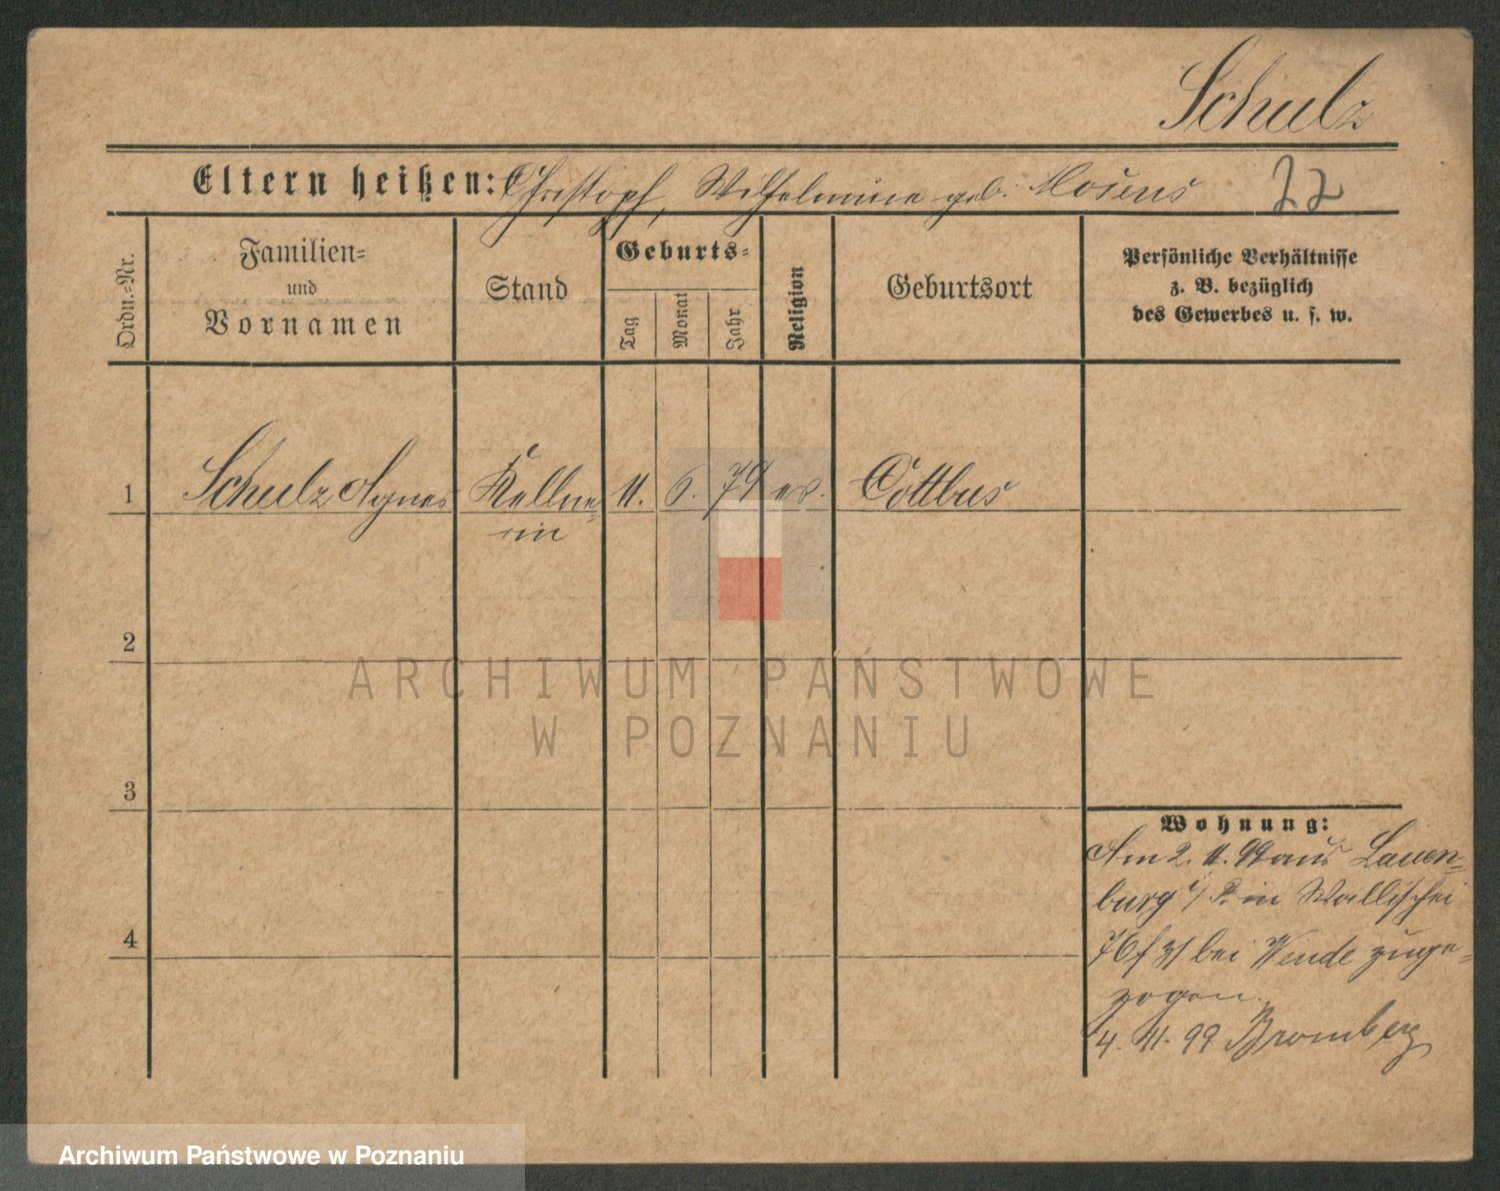 Schulz
Eltern heißen: Christoph, Wilhelmine geb.
22
Ordn.-Nr.
Familien-
und
Vornamen
Stand
Geburts-
Tag
Monat
Jahr
Religion
Geburtsort
Persönliche Verhältnisse
z. B. bezüglich
des Gewerbes u. s. w.
1 Schulz Agnes Kellne- 11. 6. 79 ev. Cottbus
rin
2
3
4
Wohnung:
Am 2. 11. 99 aus Lauen-
burg i/P. in Wallischei
76 bei Wende zuge-
zogen.
4. 11. 99 Bromberg
ARCHIWUM PAŃSTWOWE
W POZNANIU
Archiwum Państwowe w Poznaniu